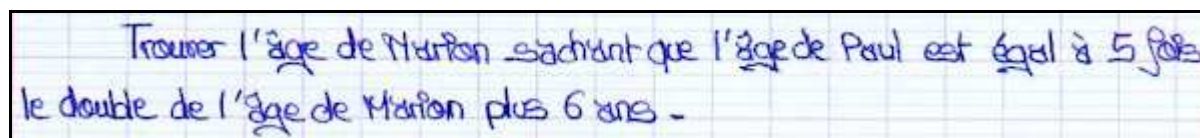 Trouver l'âge de Marion sachant que l'âge de Paul est égal à 5 fois
le double de l'âge de Marion plus 6 ans.